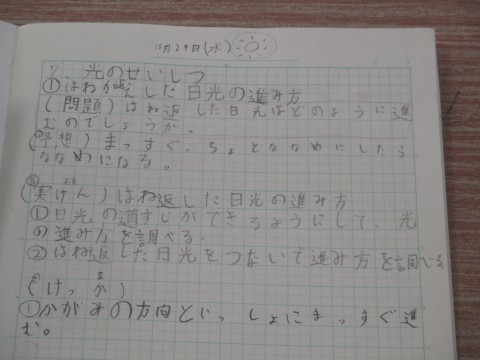 10月29日(水)
7 光のせいしつ
①はねかえした日光の進み方
(問題)はね返した日光はどのように進
むのでしょうか。
(予想)まっすぐ、ちょとななめにしたら
ななめになる。
(実けん)はね返した日光の進み方
①日光の道すじができるようにして、光
の進み方を調べる。
②はね返した日光をつないで進み方を調べる
(けっか)
①かがみの方向といっしょにまっすぐ進
む。